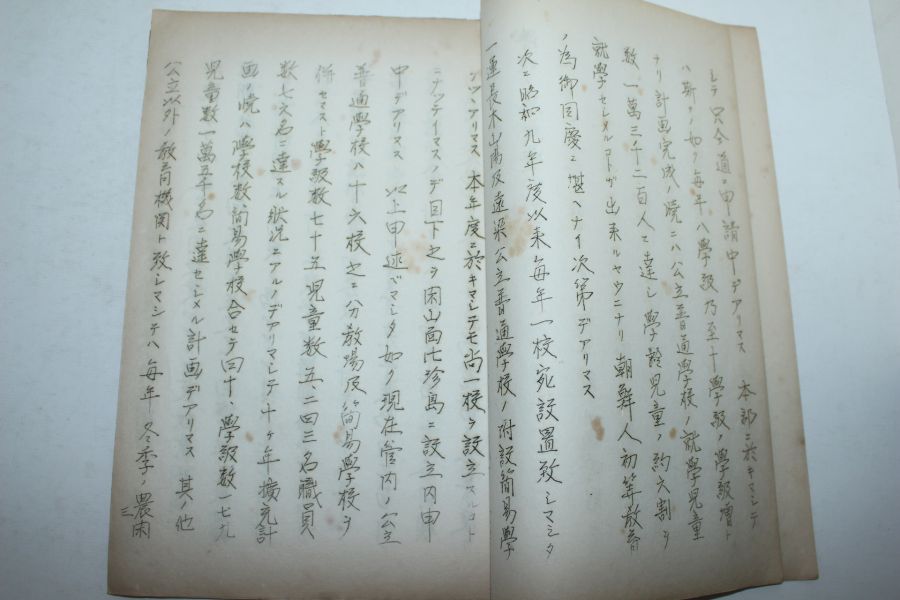 シテ只今道ニ申請中デアリマス 本郡ニ於キマシテ
ハ斯ノ如ク毎年八學級乃至十學級ノ學級増ト
ナリ計画完成ノ暁ニハ公立普通學校ノ就學児童
数一萬三千二百人ニ達シ學齢児童ノ約六割ヲ
就學セシメルコトガ出来ルヤウニナリ朝鮮人初等教育
ノ為御同慶ニ堪ヘナイ次第デアリマス
次ニ昭和九年度以来毎年一校宛設置致シマシタ
一運長木山陽及遠梁公立普通學校ノ附設簡易學
デアリマス 本年度ニ於キマシテモ尚一校ヲ設立スルコト
ニナツテイマスノデ目下之ヲ閑山面七珍島ニ設立内申
中デアリマス 以上申述ベマシタ如ク現在管内ノ公立
普通學校ハ十六校之ニ分教場及簡易學校ヲ
併セマスト學級数七十五児童数五、二四三名職員
数七六名ニ達スル状況ニアルノデアリマシテ十ケ年擴充計
画ノ暁ハ學校数簡易學校合セテ四十、學級数一七九
児童数一萬五千名ニ達セシメル計画デアリマス 其ノ他
公立以外ノ教育機関ト致シマシテハ毎年 冬季ノ農閑
三